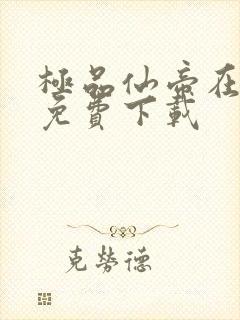 極品仙帝在
免費下載
克勞德